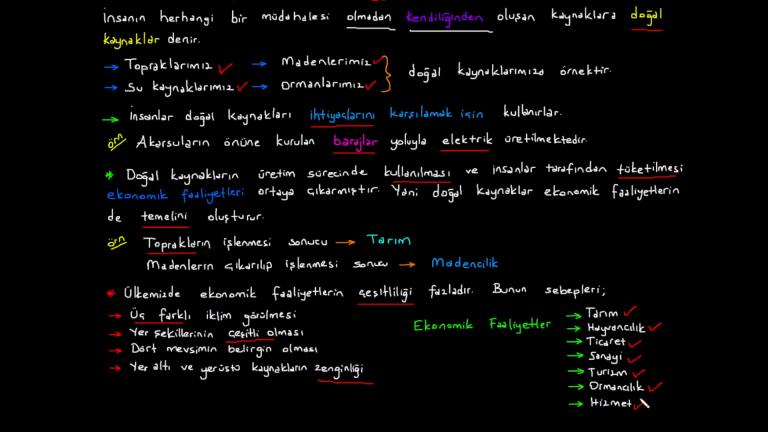 İnsanın herhangi bir müdahalesi olmadan kendiliğinden oluşan kaynaklara doğal
kaynaklar denir.
→ Topraklarımız → Madenlerimiz
→ Su kaynaklarımız → Ormanlarımız
doğal kaynaklarımıza örnektir.
→ İnsanlar doğal kaynakları ihtiyaçlarını karşılamak için kullanırlar.
örn Akarsuların önüne kurulan barajlar yoluyla elektrik üretilmektedir.
* Doğal kaynakların üretim sürecinde kullanılması ve insanlar tarafından tüketilmesi
ekonomik faaliyetleri ortaya çıkarmıştır. Yani doğal kaynaklar ekonomik faaliyetlerin
de temelini oluşturur.
örn Toprakların işlenmesi sonucu → Tarım
Madenlerin çıkarılıp işlenmesi sonucu → Madencilik
* Ülkemizde ekonomik faaliyetlerin çeşitliliği fazladır. Bunun sebepleri;
→ Üç farklı iklim görülmesi
→ Yer şekillerinin çeşitli olması
→ Dört mevsimin belirgin olması
→ Yer altı ve yerüstü kaynakların zenginliği
Ekonomik Faaliyetler
→ Tarım
→ Hayvancılık
→ Ticaret
→ Sanayi
→ Turizm
→ Ormancılık
→ Hizmet